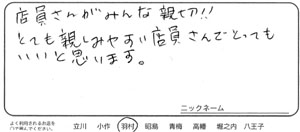 店員さんがみんな親切!!
とても親しみやすい店員さんでとっても
いいと思います。
ニックネーム
よく利用されるお店を
○で囲んでください。
立川 小作 羽村 昭島 青梅 高幡 堀之内 八王子